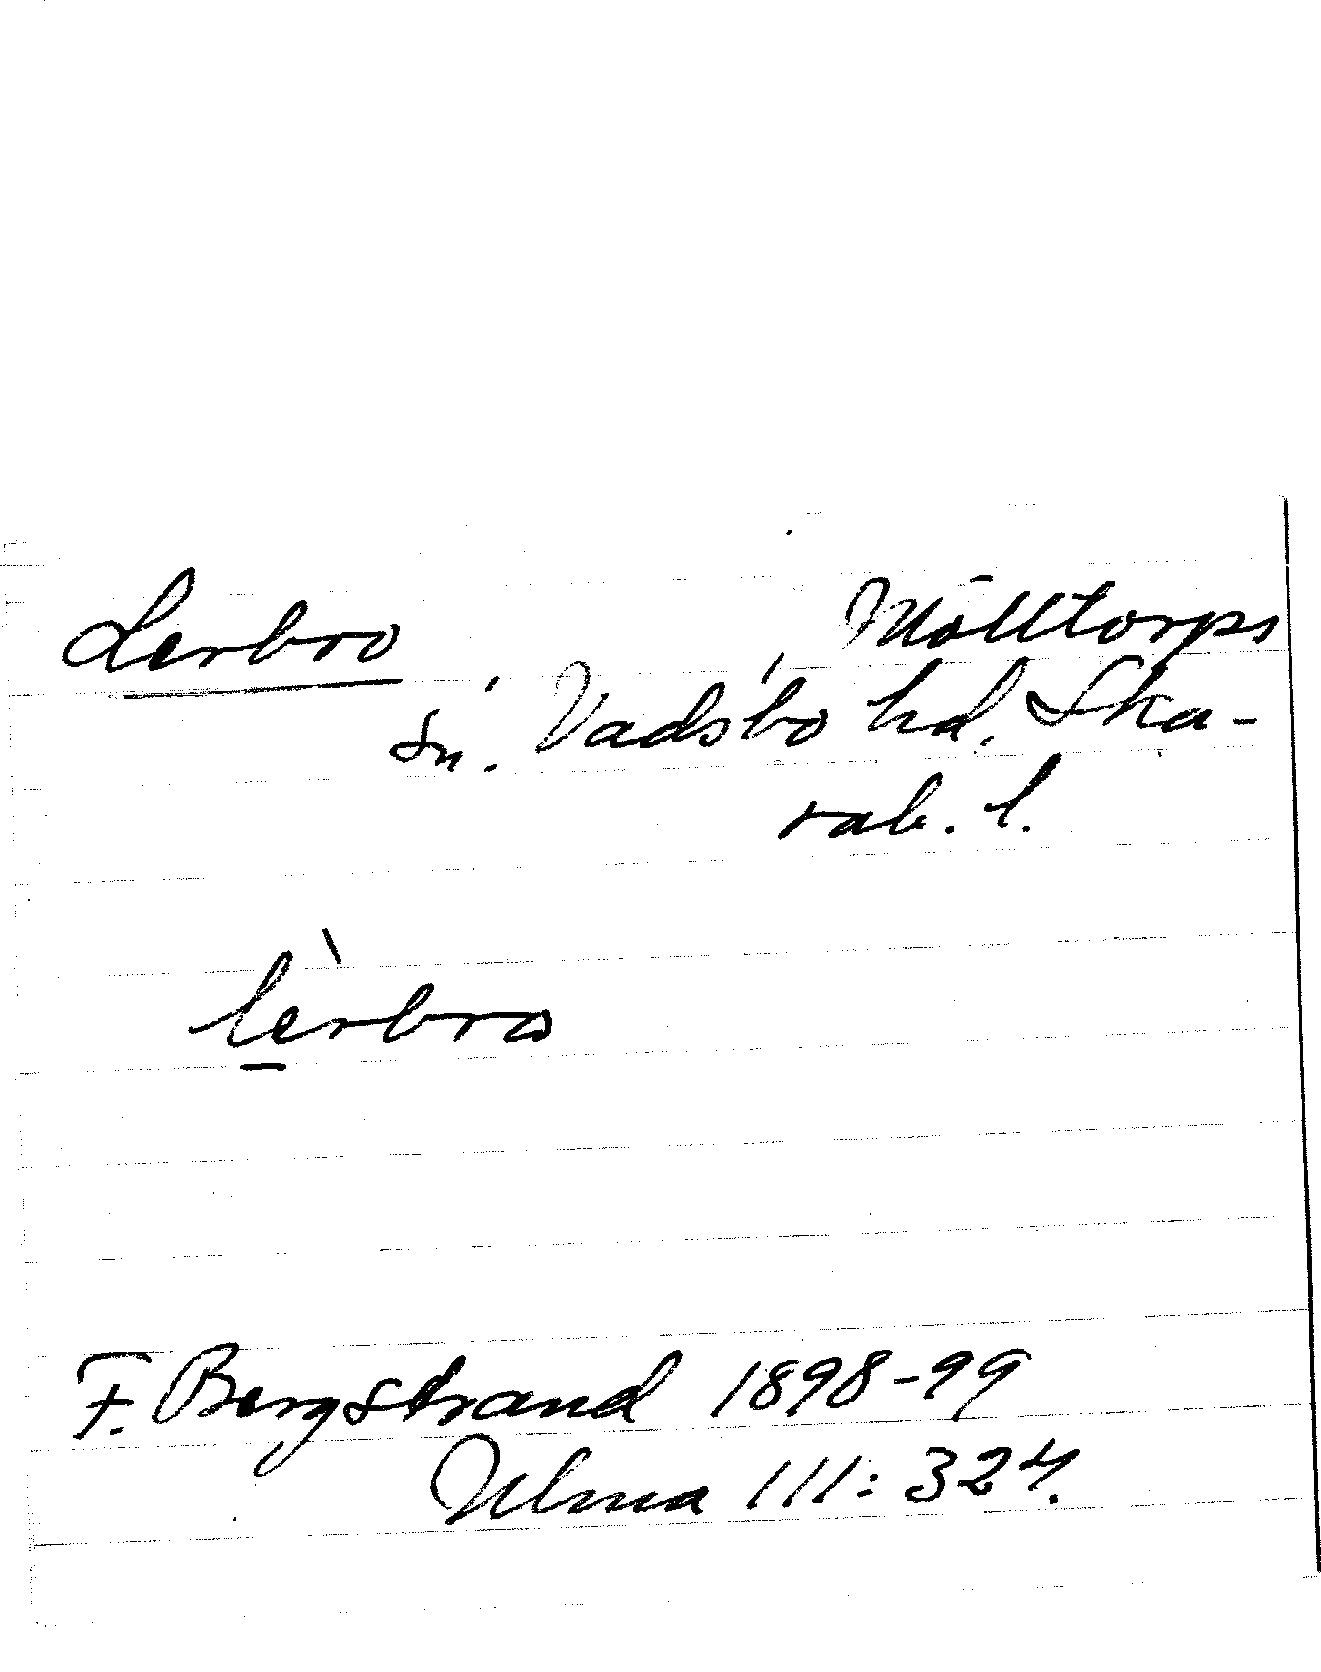 Lerbro Mölltorps
sn. Vadsbo hd, Ska-
rab. l.
lèrbro
F. Bergstrand 1898-99
Ulma 111: 324.